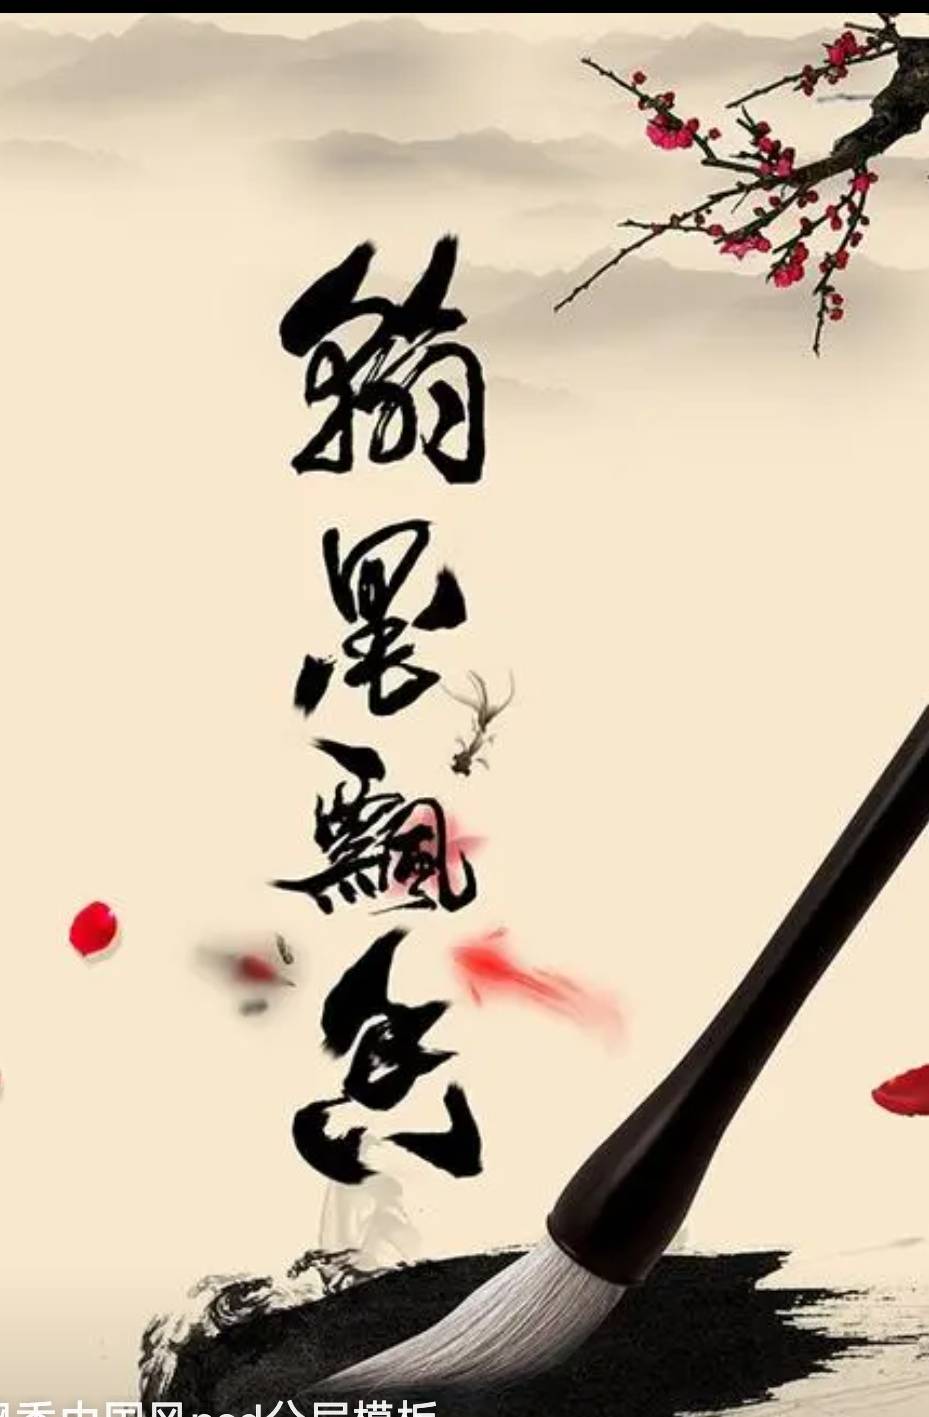 翰墨飄香
飘香中国风psd分层模板